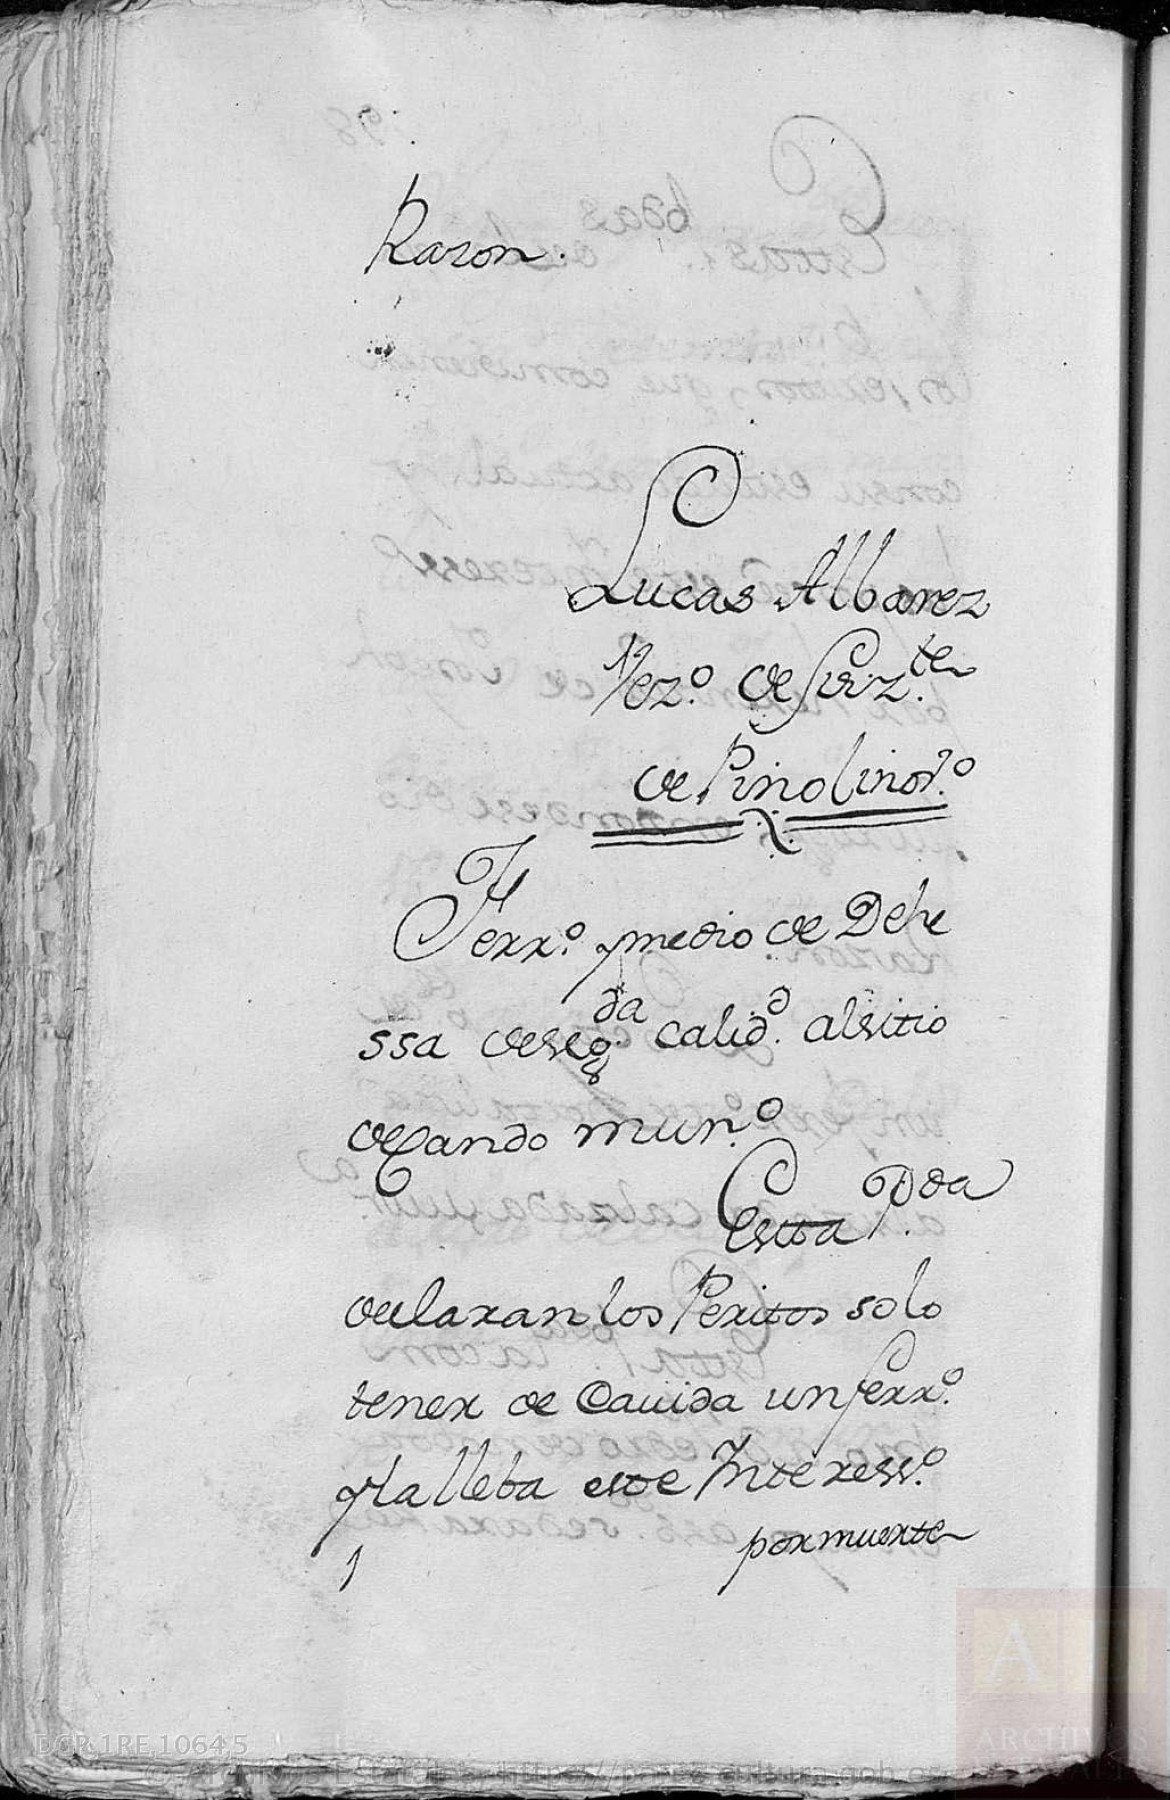 Razon.
Lucas Albarez
Vez.º de
de Pino linor.º
Ferr.º y medio de Dehe
ssa de seg.da calid.d al sitio
de Cando mun.º
Estta p.da
declaran los Peritos solo
tener de Cavida un ferr.º
y la lleba este Interess.º
por muerte
DGR,1RE,10645
ARCHIVOS